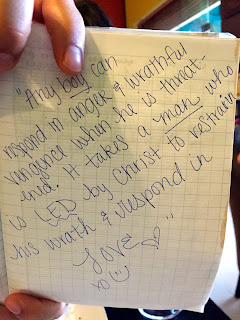 "Any boy can
respond in anger & wrathful
vengence when he is threat-
ened. It takes a man who
is LED by Christ to restrain
his wrath & respond in
LOVE ♡"
xo ☺